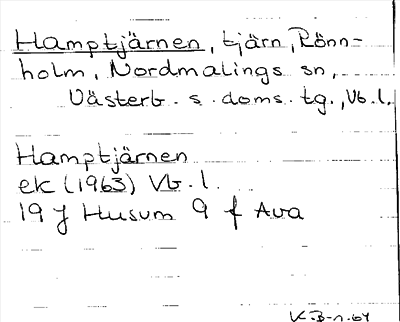 Hamptjärnen, tjärn, Rönn-
holm, Nordmalings sn,
Västerb. s. doms. tg., Vb. l.
Hamptjärnen
ek (1963) Vb. l.
19 J Husum 9 f Ava